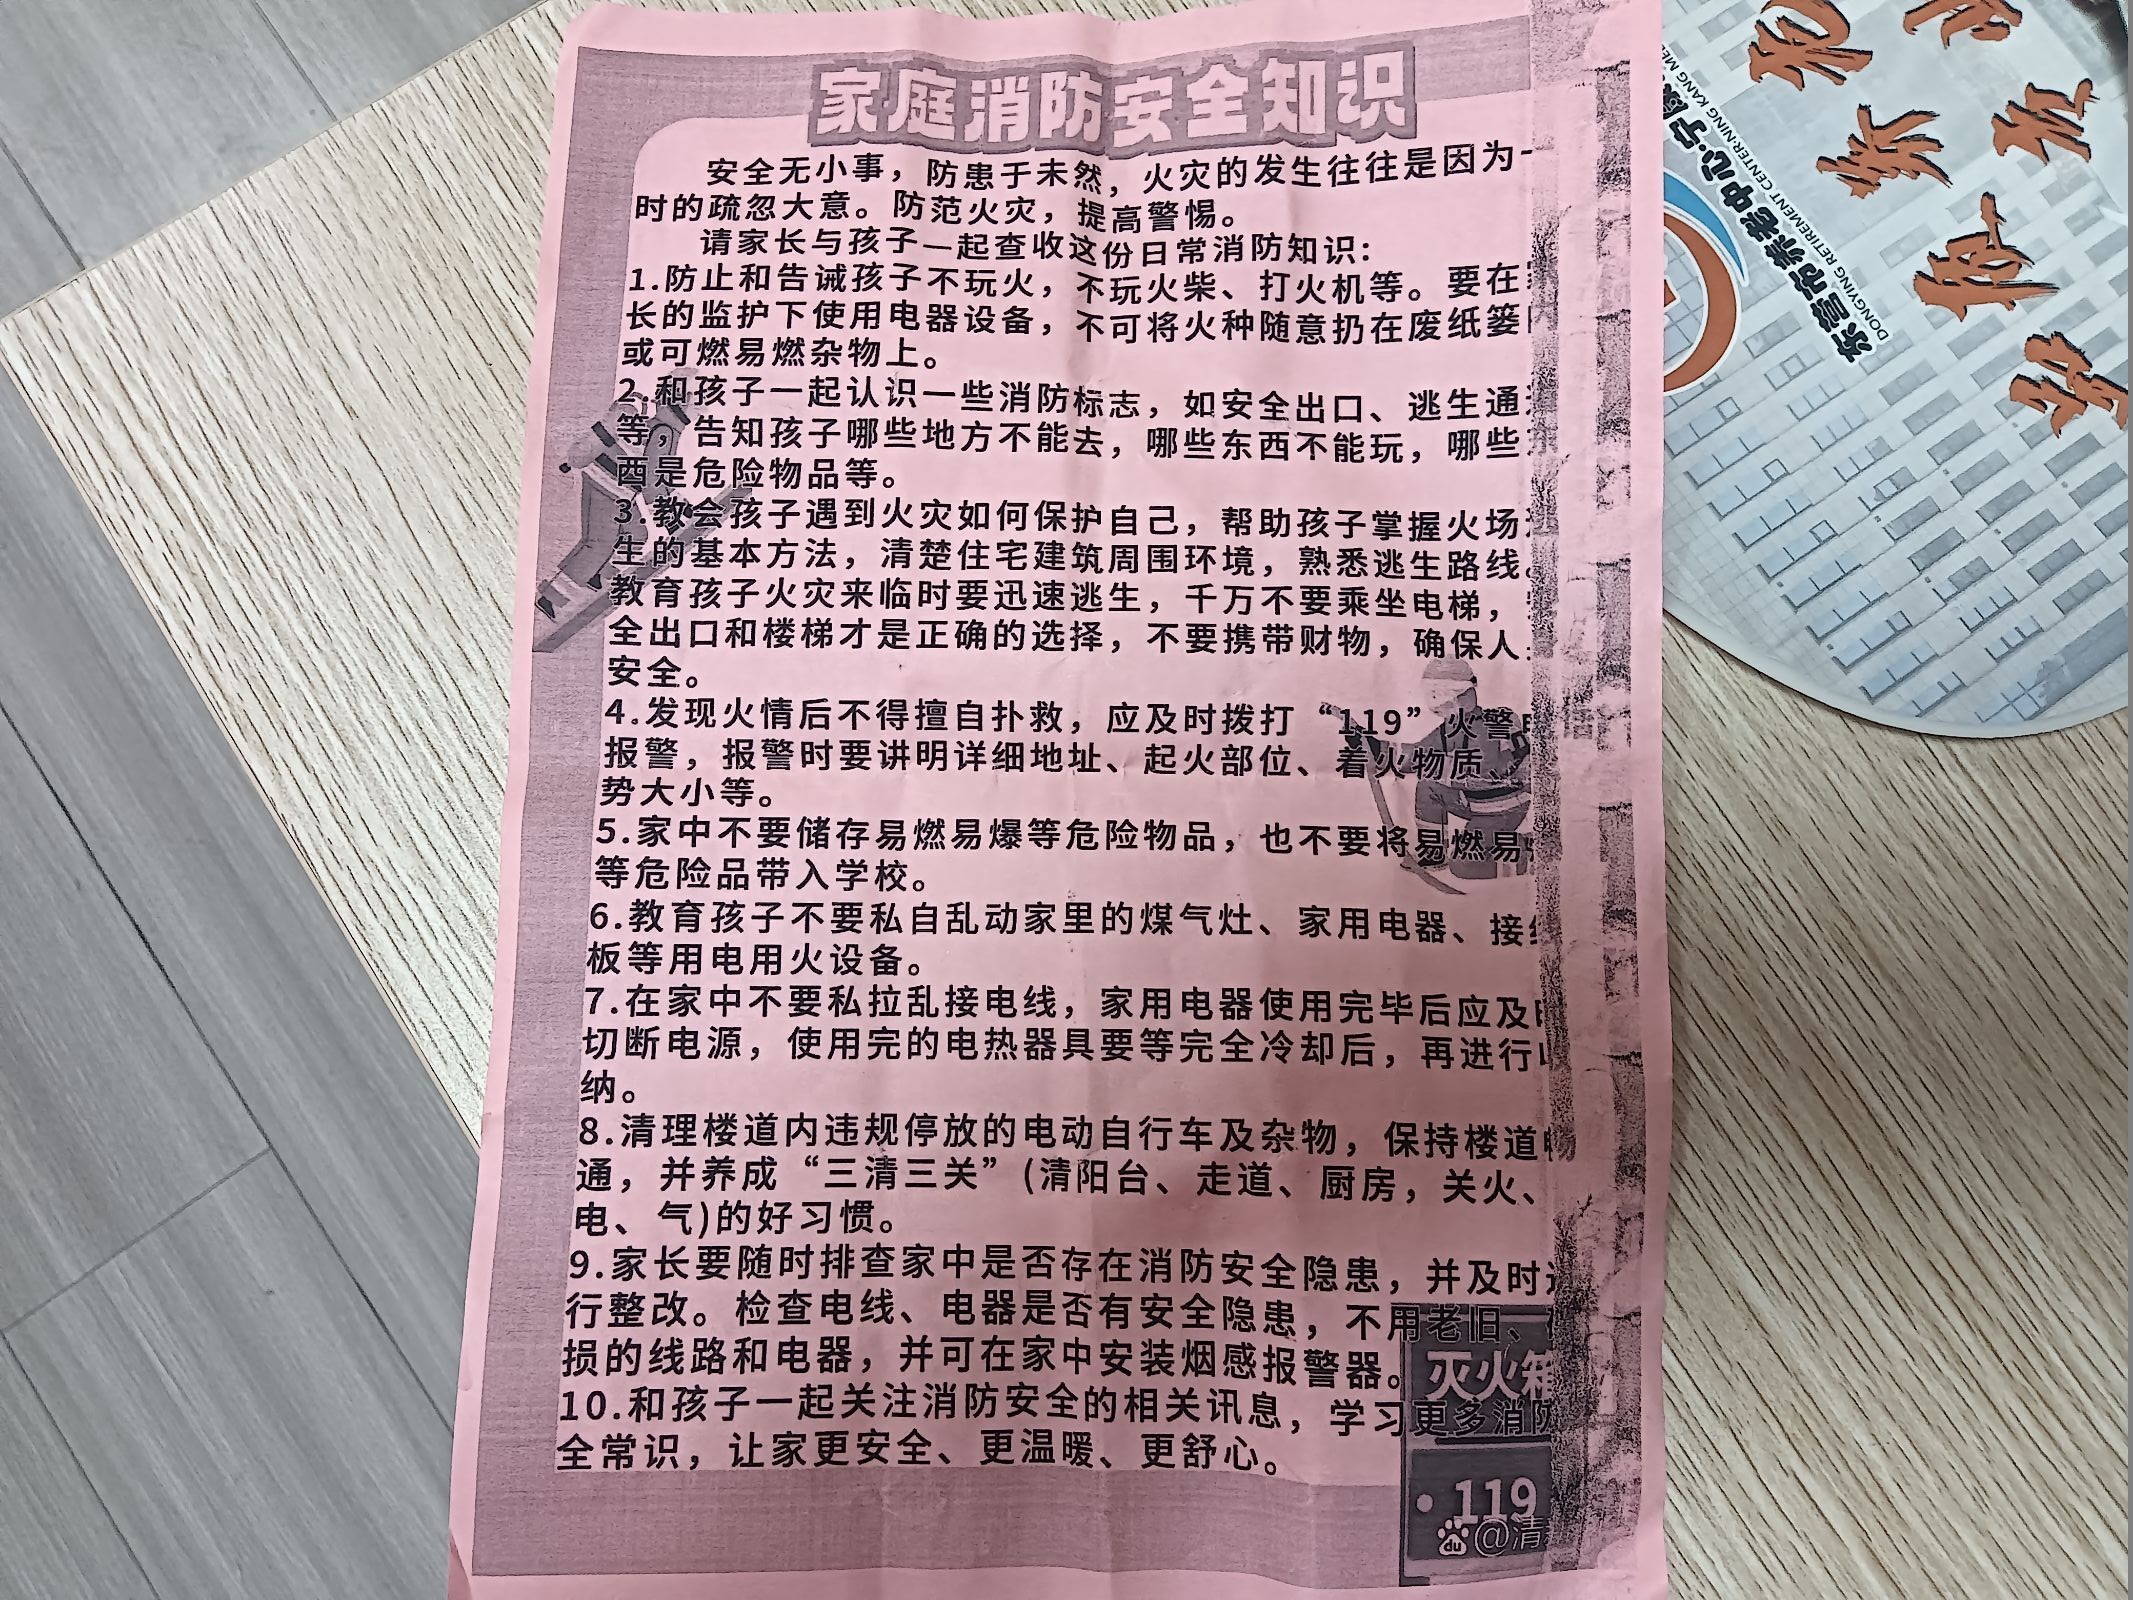 家庭消防安全知识
安全无小事，防患于未然，火灾的发生往往是因为一
时的疏忽大意。防范火灾，提高警惕。
请家长与孩子一起查收这份日常消防知识：
1.防止和告诫孩子不玩火，不玩火柴、打火机等。要在家
长的监护下使用电器设备，不可将火种随意扔在废纸篓
或可燃易燃杂物上。
2.和孩子一起认识一些消防标志，如安全出口、逃生通
等，告知孩子哪些地方不能去，哪些东西不能玩，哪些
西是危险物品等。
3.教会孩子遇到火灾如何保护自己，帮助孩子掌握火场
生的基本方法，清楚住宅建筑周围环境，熟悉逃生路线。
教育孩子火灾来临时要迅速逃生，千万不要乘坐电梯，
全出口和楼梯才是正确的选择，不要携带财物，确保人
安全。
4.发现火情后不得擅自扑救，应及时拨打“119”火警电
报警，报警时要讲明详细地址、起火部位、着火物质、
势大小等。
5.家中不要储存易燃易爆等危险物品，也不要将易燃易
等危险品带入学校。
6.教育孩子不要私自乱动家里的煤气灶、家用电器、接
板等用电用火设备。
7.在家中不要私拉乱接电线，家用电器使用完毕后应及时
切断电源，使用完的电热器具要等完全冷却后，再进行
纳。
8.清理楼道内违规停放的电动自行车及杂物，保持楼道畅
通，并养成“三清三关”(清阳台、走道、厨房，关火、
电、气)的好习惯。
9.家长要随时排查家中是否存在消防安全隐患，并及时
行整改。检查电线、电器是否有安全隐患，不用老旧、
损的线路和电器，并可在家中安装烟感报警器。
灭火箱
10.和孩子一起关注消防安全的相关讯息，学习更多消防
全常识，让家更安全、更温暖、更舒心。
119
du @清
东营市养老中心·宁康
DONGYING RETIREMENT CENTER·NING KANG MED